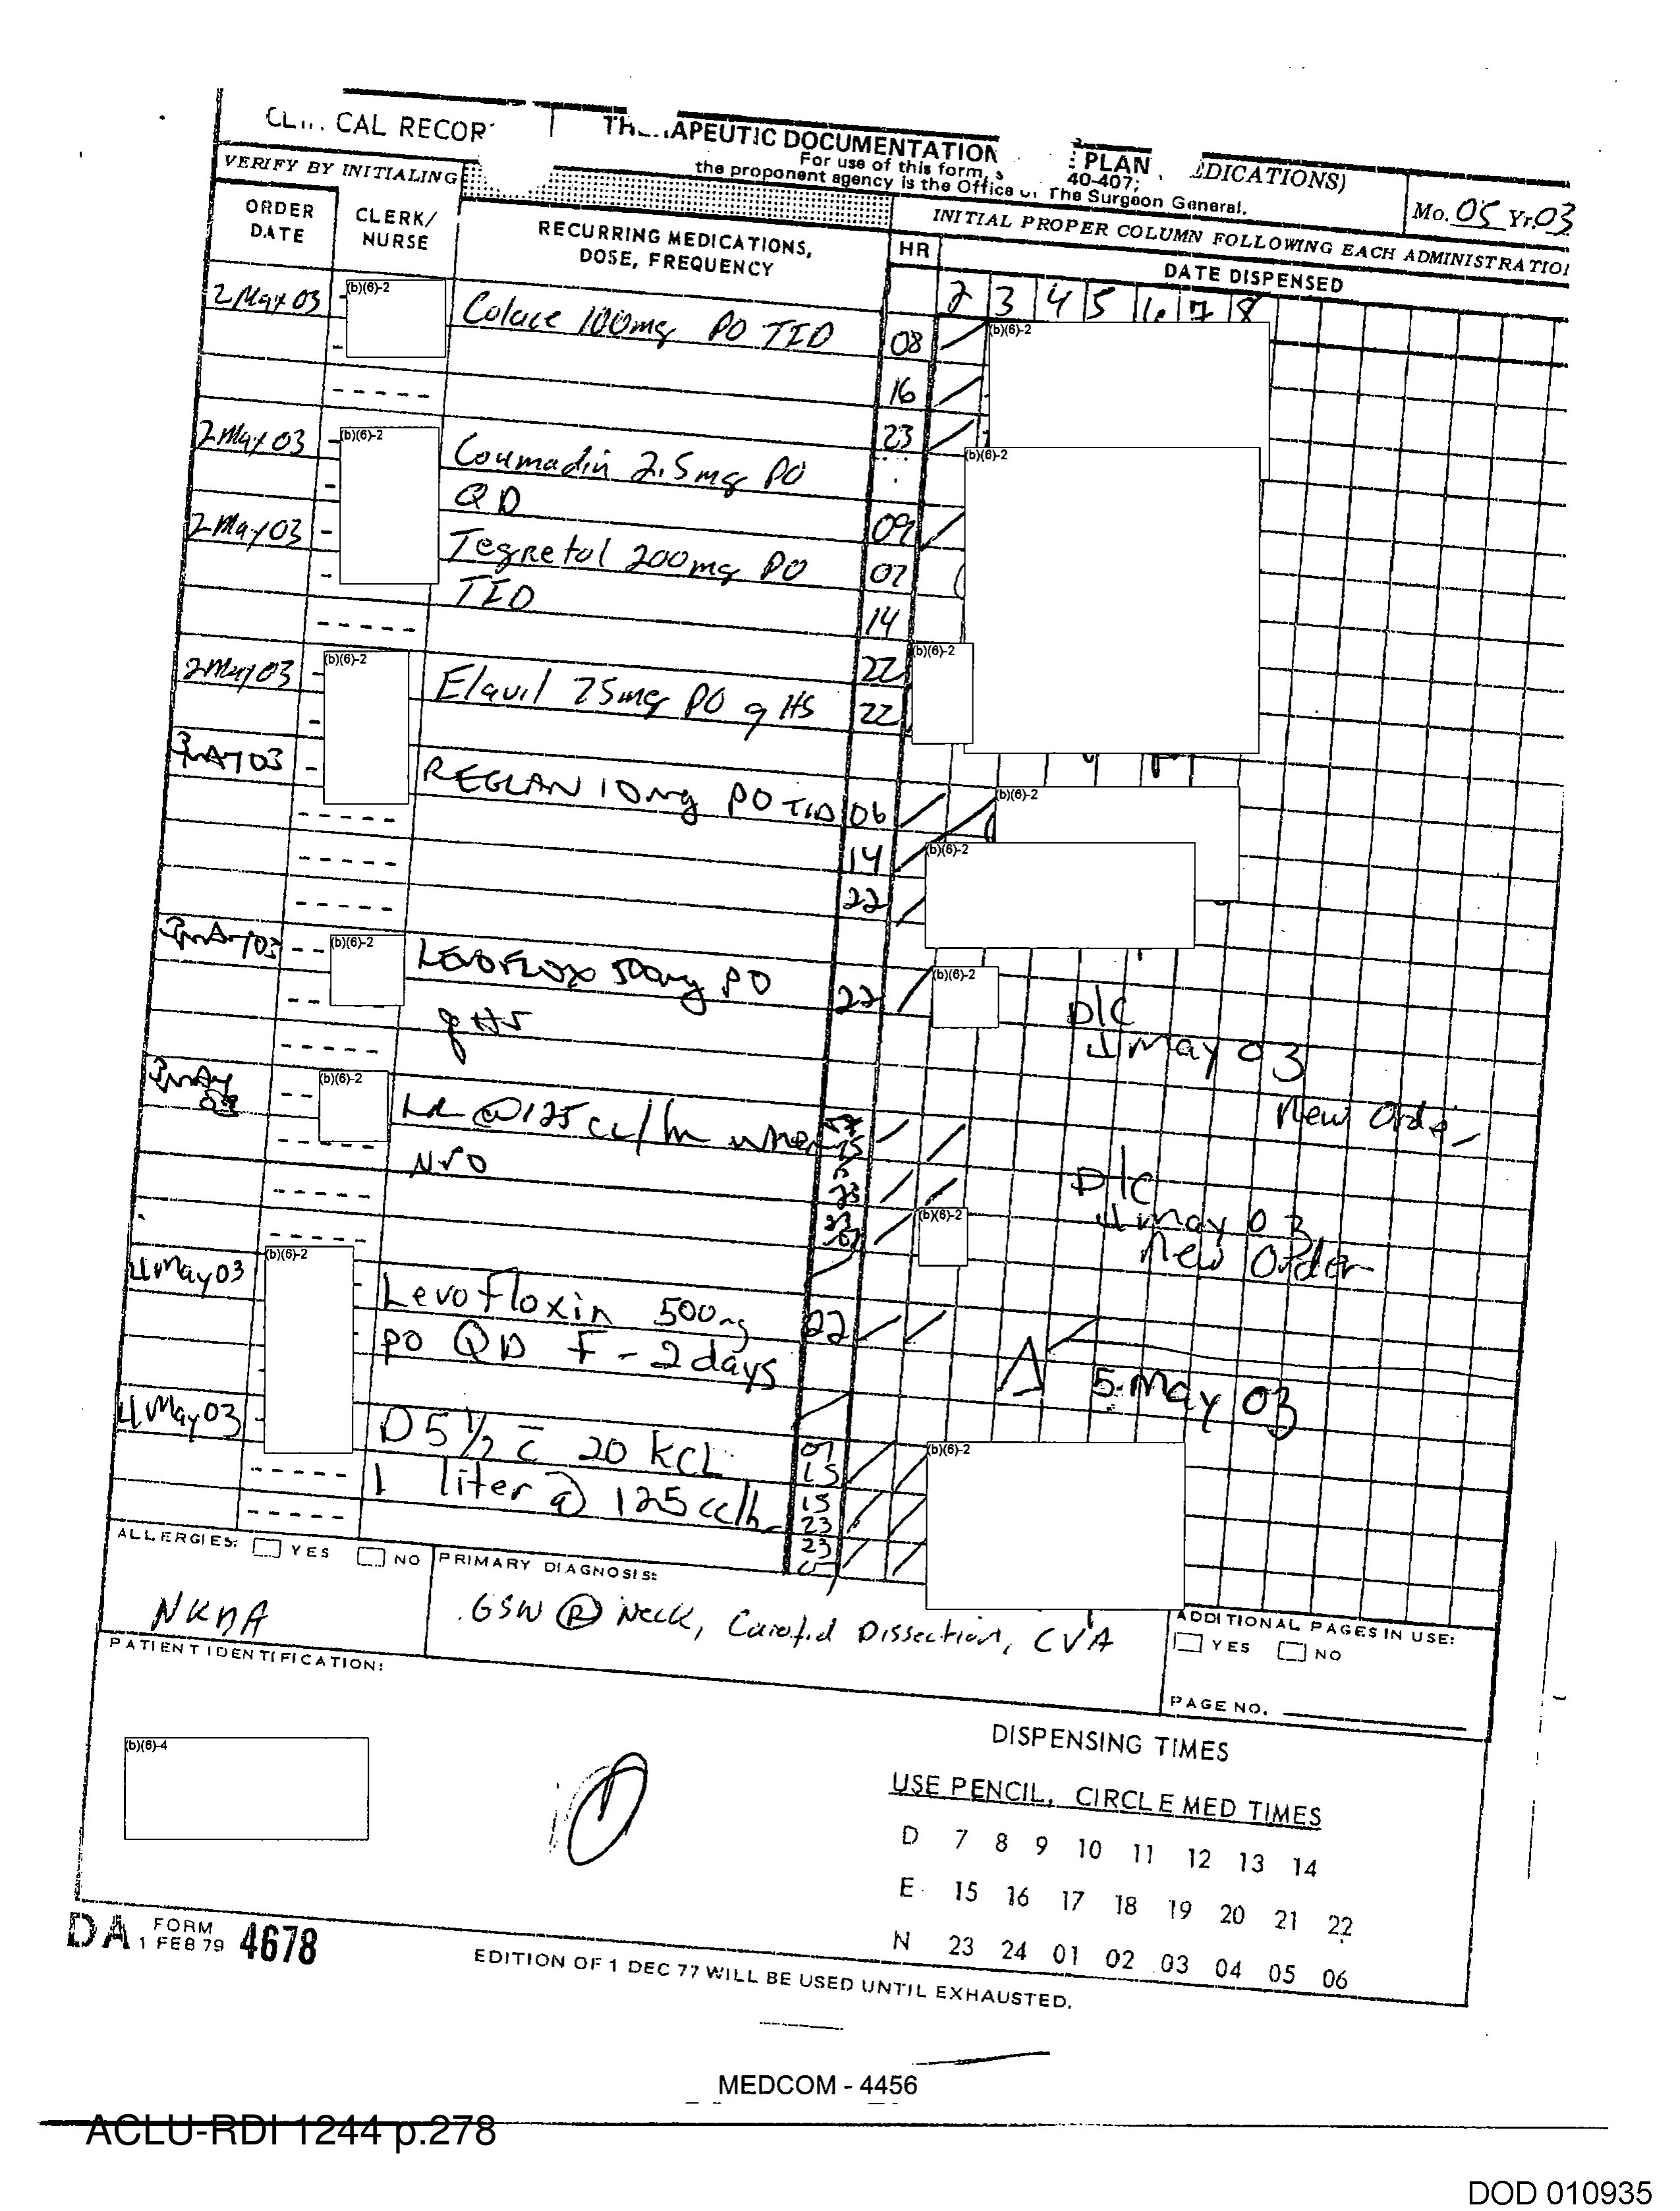 CLI. CAL RECOR
TH APEUTIC DOCUMENTATION PLAN EDICATIONS)
For use of this form, s 40-407;
the proponent agency is the Office of The Surgeon General.
Mo. 05 Yr. 03
VERIFY BY INITIALING
INITIAL PROPER COLUMN FOLLOWING EACH ADMINISTRATIO
ORDER DATE
CLERK/ NURSE
RECURRING MEDICATIONS, DOSE, FREQUENCY
HR
DATE DISPENSED
2 3 4 5 6 7 8
2 May 03 (b)(6)-2 Colace 100mg PO TID 08 (b)(6)-2
16
23
2 May 03 (b)(6)-2 Coumadin 2.5mg PO (b)(6)-2
QD 09
2 May 03 Tegretol 200mg PO 07
TID 14
22 (b)(6)-2
2 May 03 (b)(6)-2 Elavil 75mg PO q HS 22
3 MAY 03 REGLAN 10mg PO TID 06 (b)(6)-2
14 (b)(6)-2
22
3 MAY 03 (b)(6)-2 LEVOFLOX 500mg PO 22 (b)(6)-2
q HS
D/C
4 May 03
New Order
3 MAY 03 (b)(6)-2 LR @ 125 cc/hr when
NPO
15
23
23
(b)(6)-2
D/C
4 May 03
New Order
4 May 03 (b)(6)-2 Levofloxin 500mg 22
PO QD F - 2 days
5 May 03
4 May 03 D5 1/2 c̄ 20 KCL 07 15 (b)(6)-2
1 liter @ 125 cc/h 15 23
23
ALLERGIES: YES NO
NKDA
PRIMARY DIAGNOSIS:
GSW Ⓡ Neck, Carotid Dissection, CVA
ADDITIONAL PAGES IN USE:
YES NO
PAGE NO.
PATIENT IDENTIFICATION:
(b)(6)-4
1
DISPENSING TIMES
USE PENCIL. CIRCLE MED TIMES
D 7 8 9 10 11 12 13 14
E 15 16 17 18 19 20 21 22
N 23 24 01 02 03 04 05 06
DA FORM 1 FEB 79 4678
EDITION OF 1 DEC 77 WILL BE USED UNTIL EXHAUSTED.
MEDCOM - 4456
ACLU-RDI 1244 p.278
DOD 010935